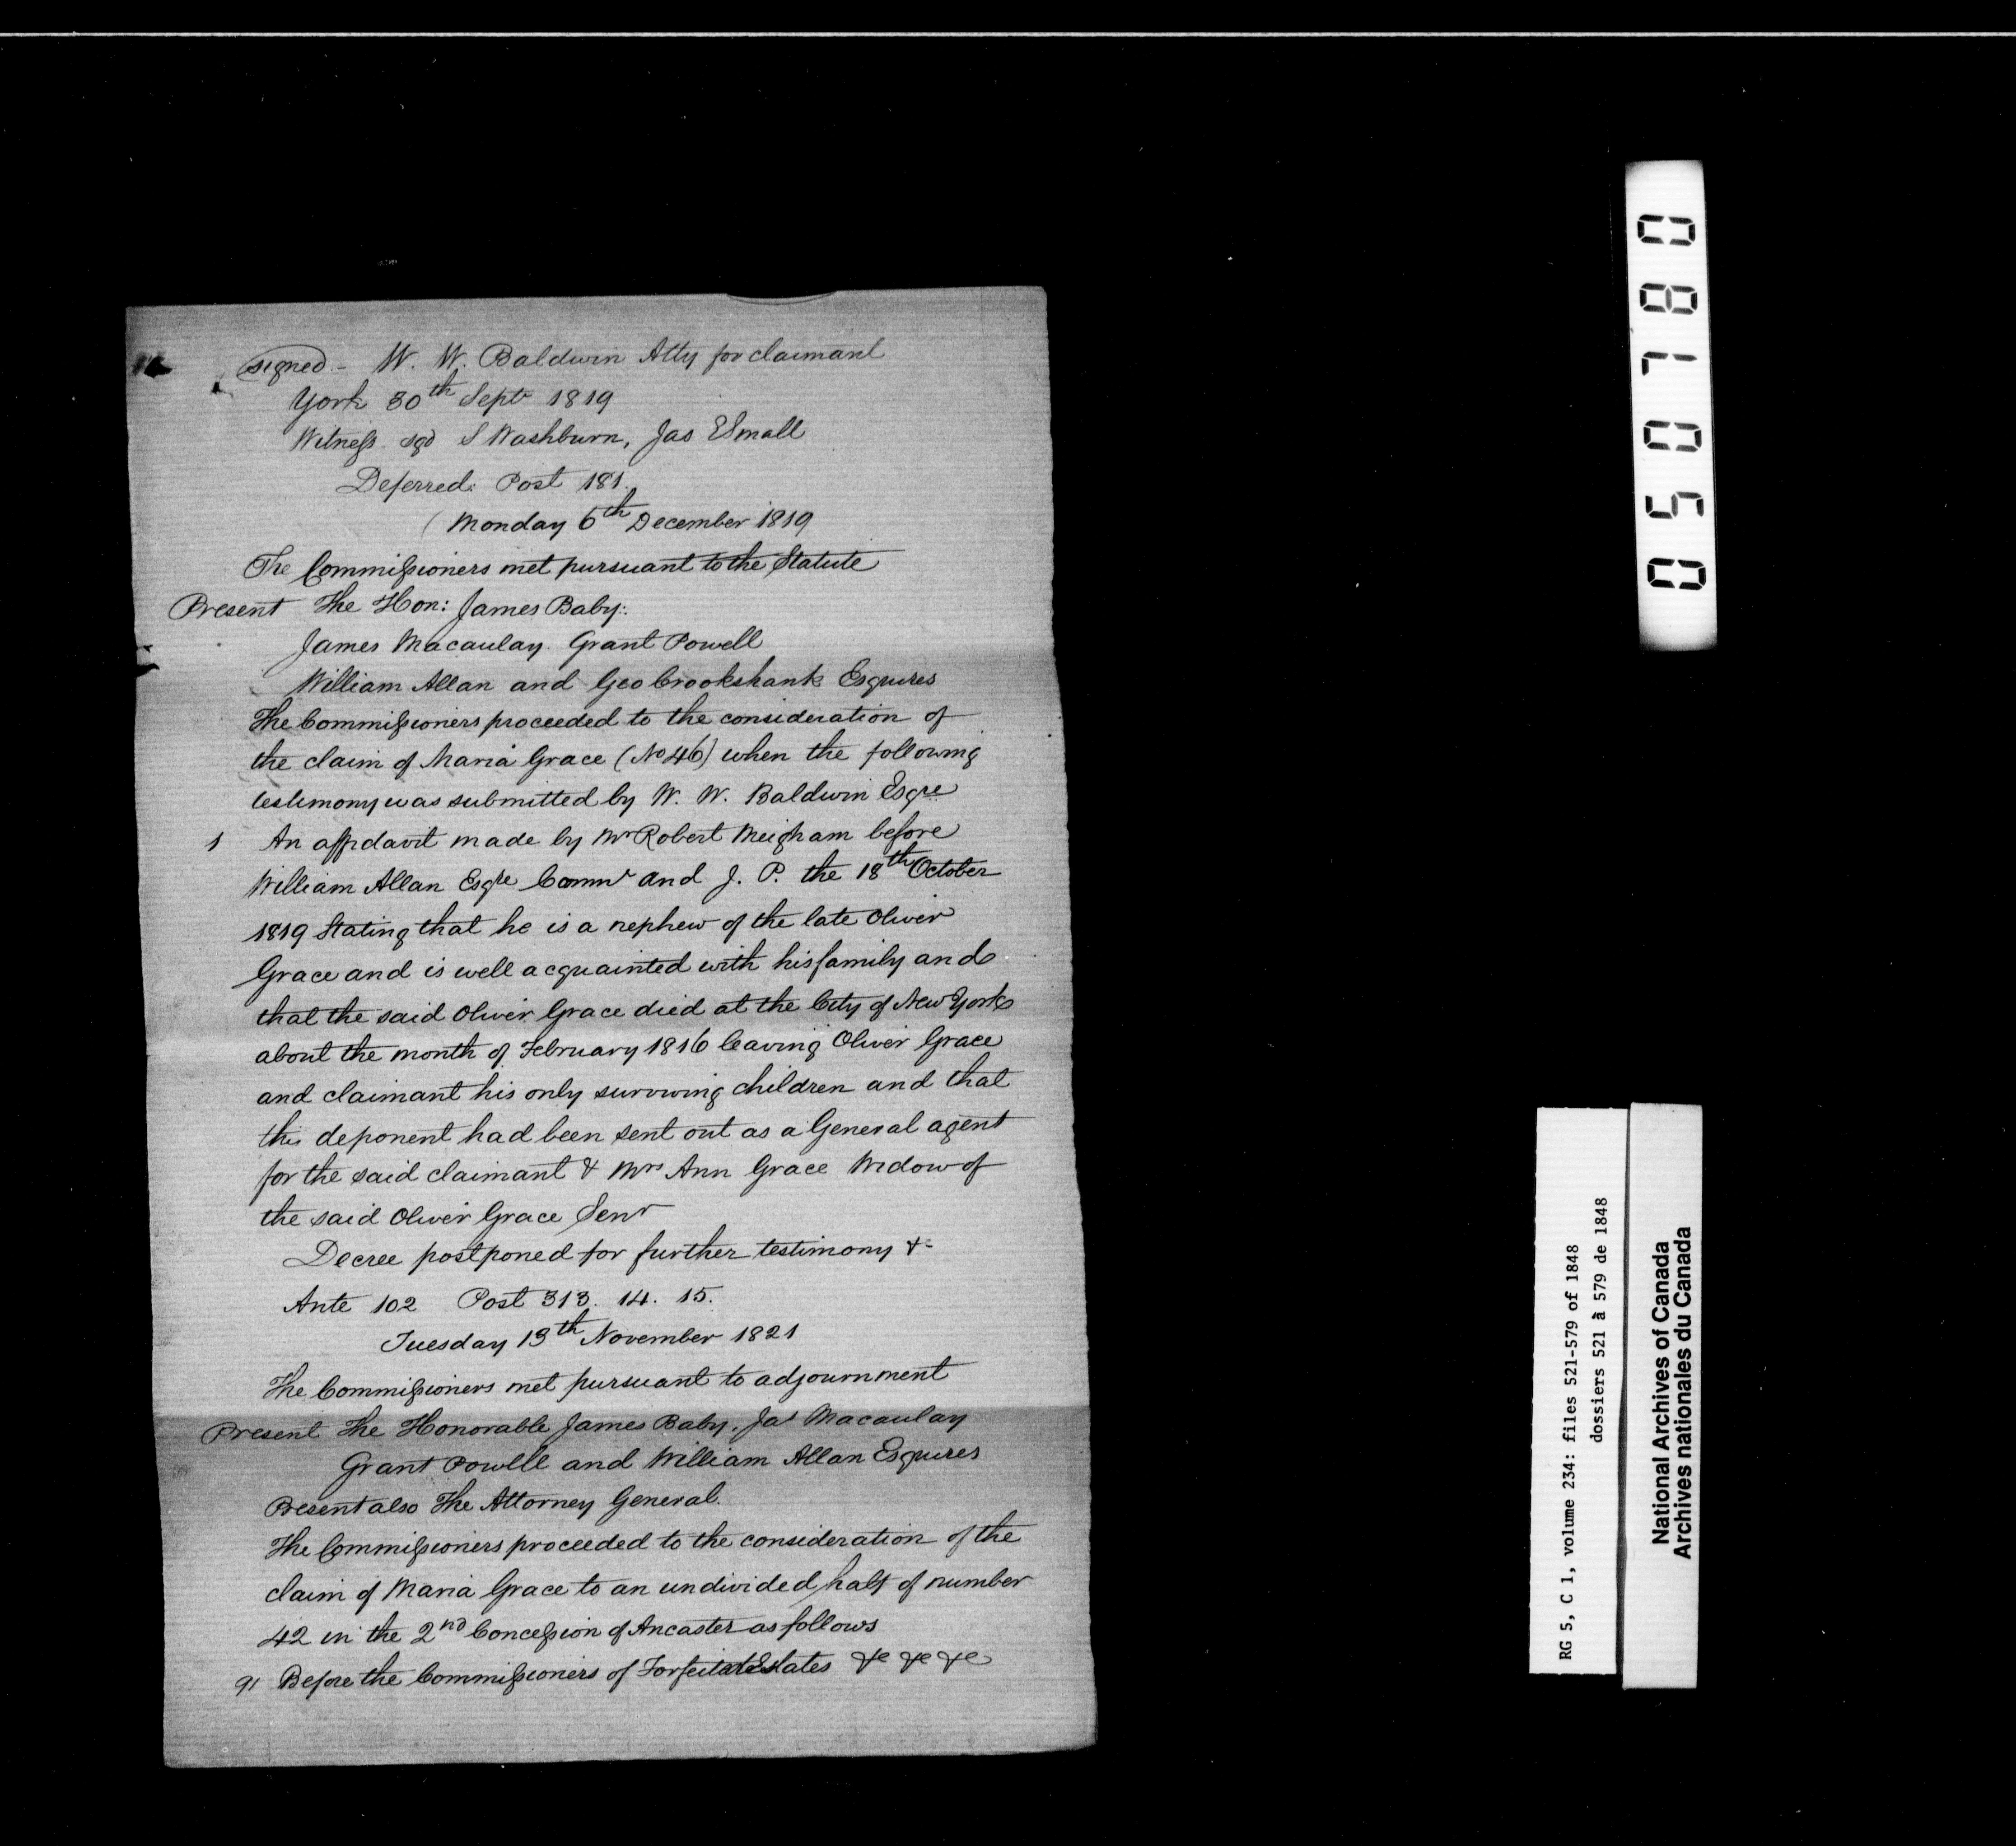 signed - W. W. Baldwin Atty for claimant
York 30th Septr 1819
Witness sgd S Washburn, Jas E Small
Deferred: Post 181.
Monday 6th December 1819
The Commissioners met pursuant to the Statute
Present The Hon: James Baby:
James Macaulay. Grant Powell
William Allan and Geo Crookshank Esquires
The Commissioners proceeded to the consideration of
the claim of Maria Grace (No 46) when the following
testimony was submitted by W. W. Baldwin Esqre
1 An affidavit made by Mr Robert Meigham before
William Allan Esqre Commr and J. P. the 18th October
1819 Stating that he is a nephew of the late Oliver
Grace and is well acquainted with his family and
that the said Oliver Grace died at the City of New York
about the month of February 1816 leaving Oliver Grace
and claimant his only surviving children and that
this deponent had been sent out as a General agent
for the said claimant & Mrs Ann Grace Widow of
the said Oliver Grace Senr
Decree postponed for further testimony &c
Ante 102 Post 313. 14. 15.
Tuesday 13th November 1821
The Commissioners met pursuant to adjournment
Present The Honorable James Baby, Jas Macaulay
Grant Powell and William Allan Esquires
Present also The Attorney General.
The Commissioners proceeded to the consideration of the
claim of Maria Grace to an undivided half of number
42 in the 2nd Concession of Ancaster as follows
91 Before the Commissioners of Forfeited Estates &c &c &c
050780
RG 5, C 1, volume 234: files 521-579 of 1848
dossiers 521 à 579 de 1848
National Archives of Canada
Archives nationales du Canada